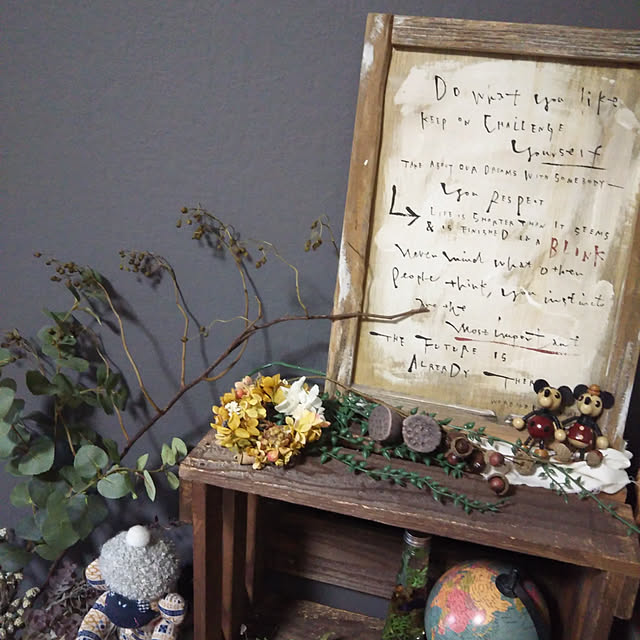 Do what you like
KEEP ON CHALLENGE
Yourself
TALK ABOUT OUR DREAMS WITH SOMEBODY
You RESPECT
LIFE IS SHORTER THEN IT SEEMS
& IS FINISHED IN A BLINK
Never mind what other
people think, your instincts
are the
Most important
THE FUTURE IS
ALREADY THERE